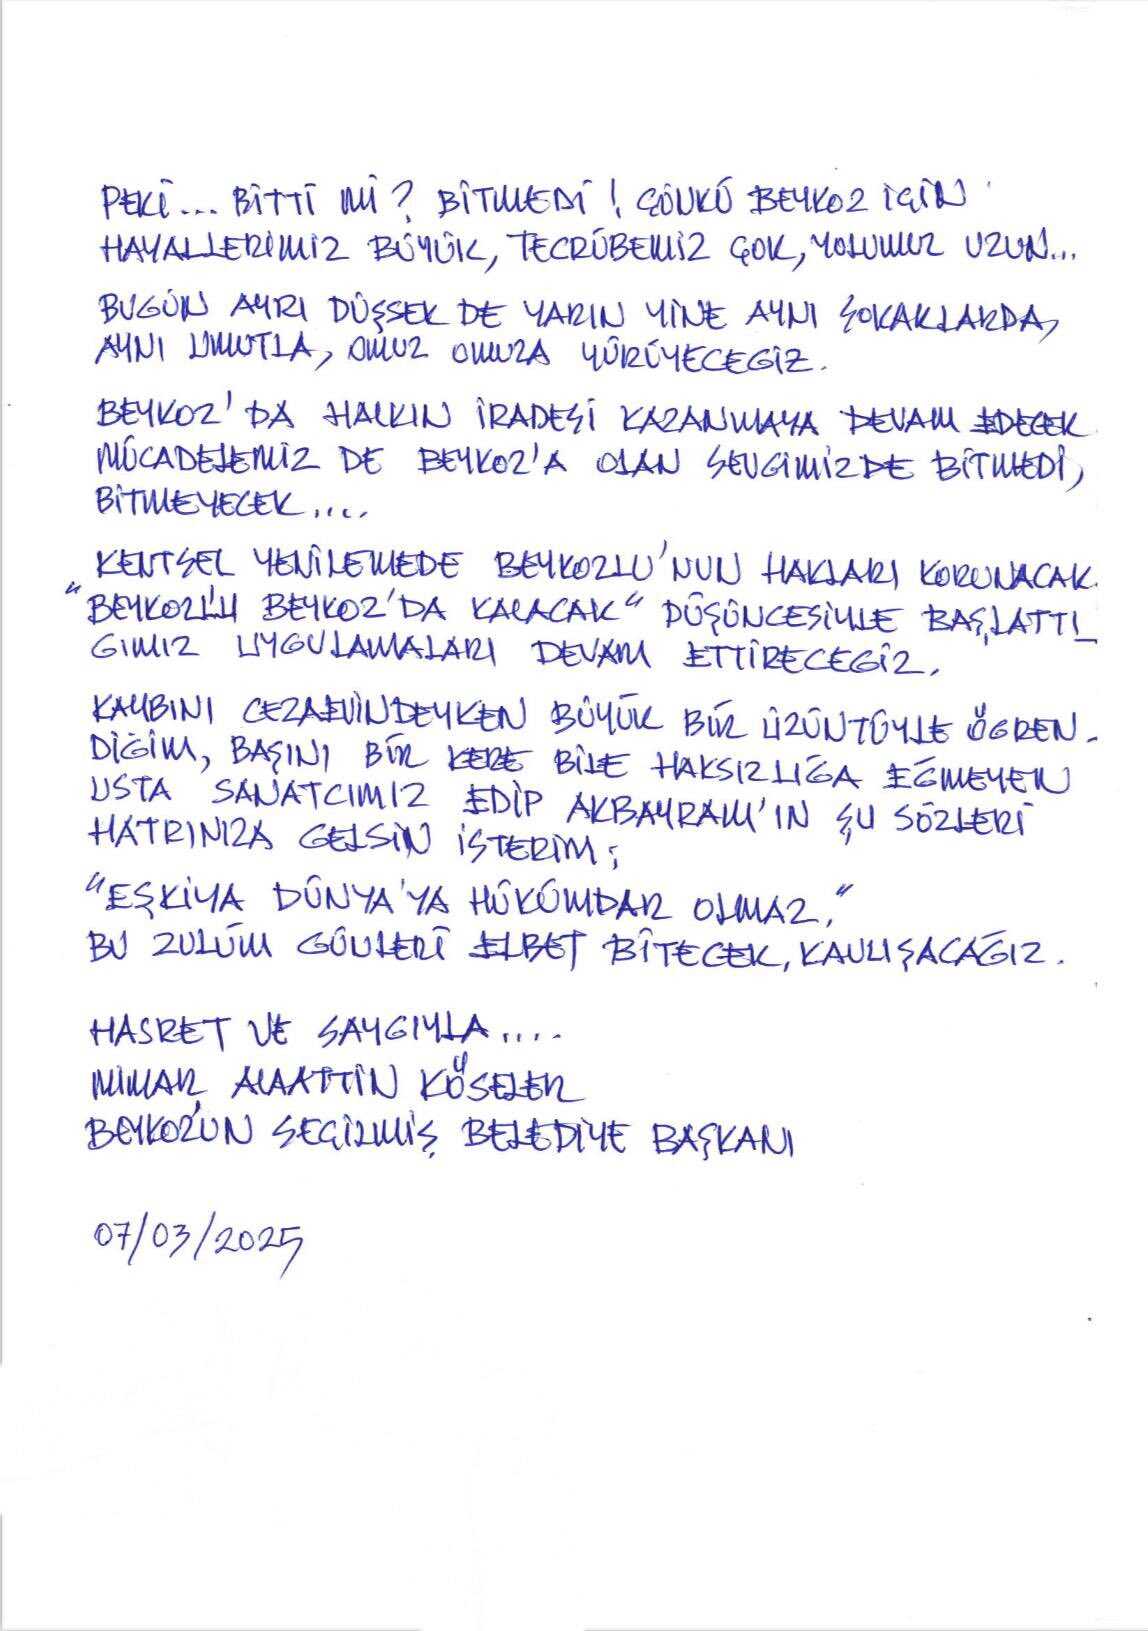 PEKİ... BİTTİ Mİ? BİTMEDİ! ÇÜNKÜ BEYKOZ İÇİN
HAYALLERİMİZ BÜYÜK, TECRÜBEMİZ ÇOK, YOLUMUZ UZUN...
BUGÜN AYRI DÜŞSEK DE YARIN YİNE AYNI SOKAKLARDA,
AYNI UMUTLA, OMUZ OMUZA YÜRÜYECEGİZ.
BEYKOZ'DA HALKIN İRADESİ KAZANMAYA DEVAM EDECEK
MÜCADELEMİZ DE BEYKOZ'A OLAN SEVGİMİZDE BİTMEDİ,
BİTMEYECEK....
KENTSEL YENİLEMEDE BEYKOZLU'NUN HAKLARI KORUNACAK.
"BEYKOZLU BEYKOZ'DA KALACAK" DÜŞÜNCESİYLE BAŞLATTI_
GIMIZ UYGULAMALARI DEVAM ETTİRECEGİZ.
KAYBINI CEZAEVİNDEYKEN BÜYÜK BİR ÜZÜNTÜYLE ÖGREN-
DİĞİM, BAŞINI BİR KERE BİLE HAKSIZLIĞA EĞMEYEN
USTA SANATCIMIZ EDİP AKBAYRAM'IN ŞU SÖZLERİ
HATRINIZA GELSİN İSTERİM;
"EŞKİYA DÜNYA'YA HÜKÜMDAR OLMAZ."
BU ZULÜM GÜNLERİ ELBET BİTECEK, KAVUŞACAĞIZ.
HASRET VE SAYGIYLA....
MİMAR ALAATTİN KÖSELER
BEYKOZ'UN SEÇİLMİŞ BELEDİYE BAŞKANI
07/03/2025